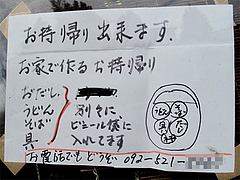 お持帰り出来ます.
お家で作るお持帰り
おだし
うどん
そば
具
別々に
ビニール袋に
入れてます
お電話でもどうぞ 092-621-